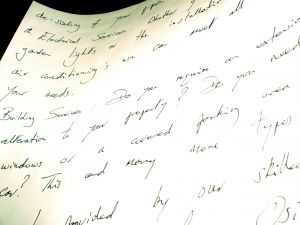 de-scaling of your pipes
Electrical Services: Whether
garden lights or the installation
air conditioning, we can meet all
your needs.
Building Services: Do you require an extension
alteration to your property? Do you need
windows or a covered parking area
car? This and many more types
provided by our skilled